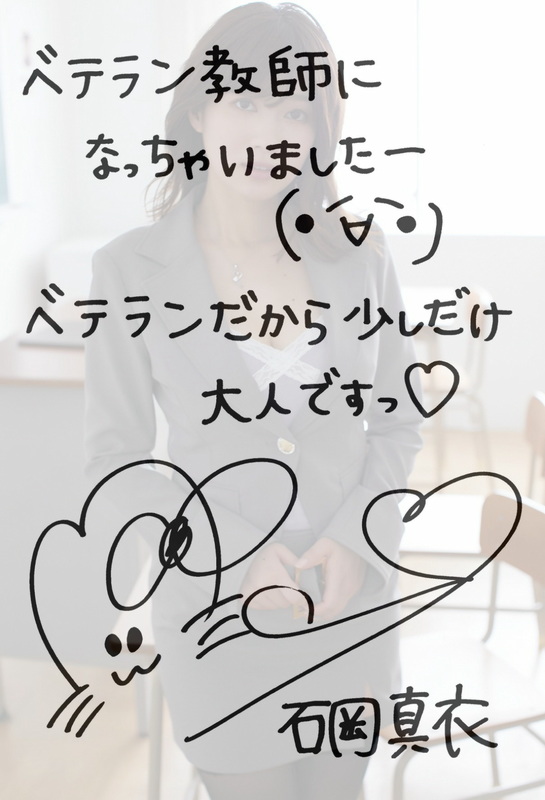 ベテラン教師に
なっちゃいましたー
(•́∀•̀)
ベテランだから少しだけ
大人ですっ♡
石岡真衣